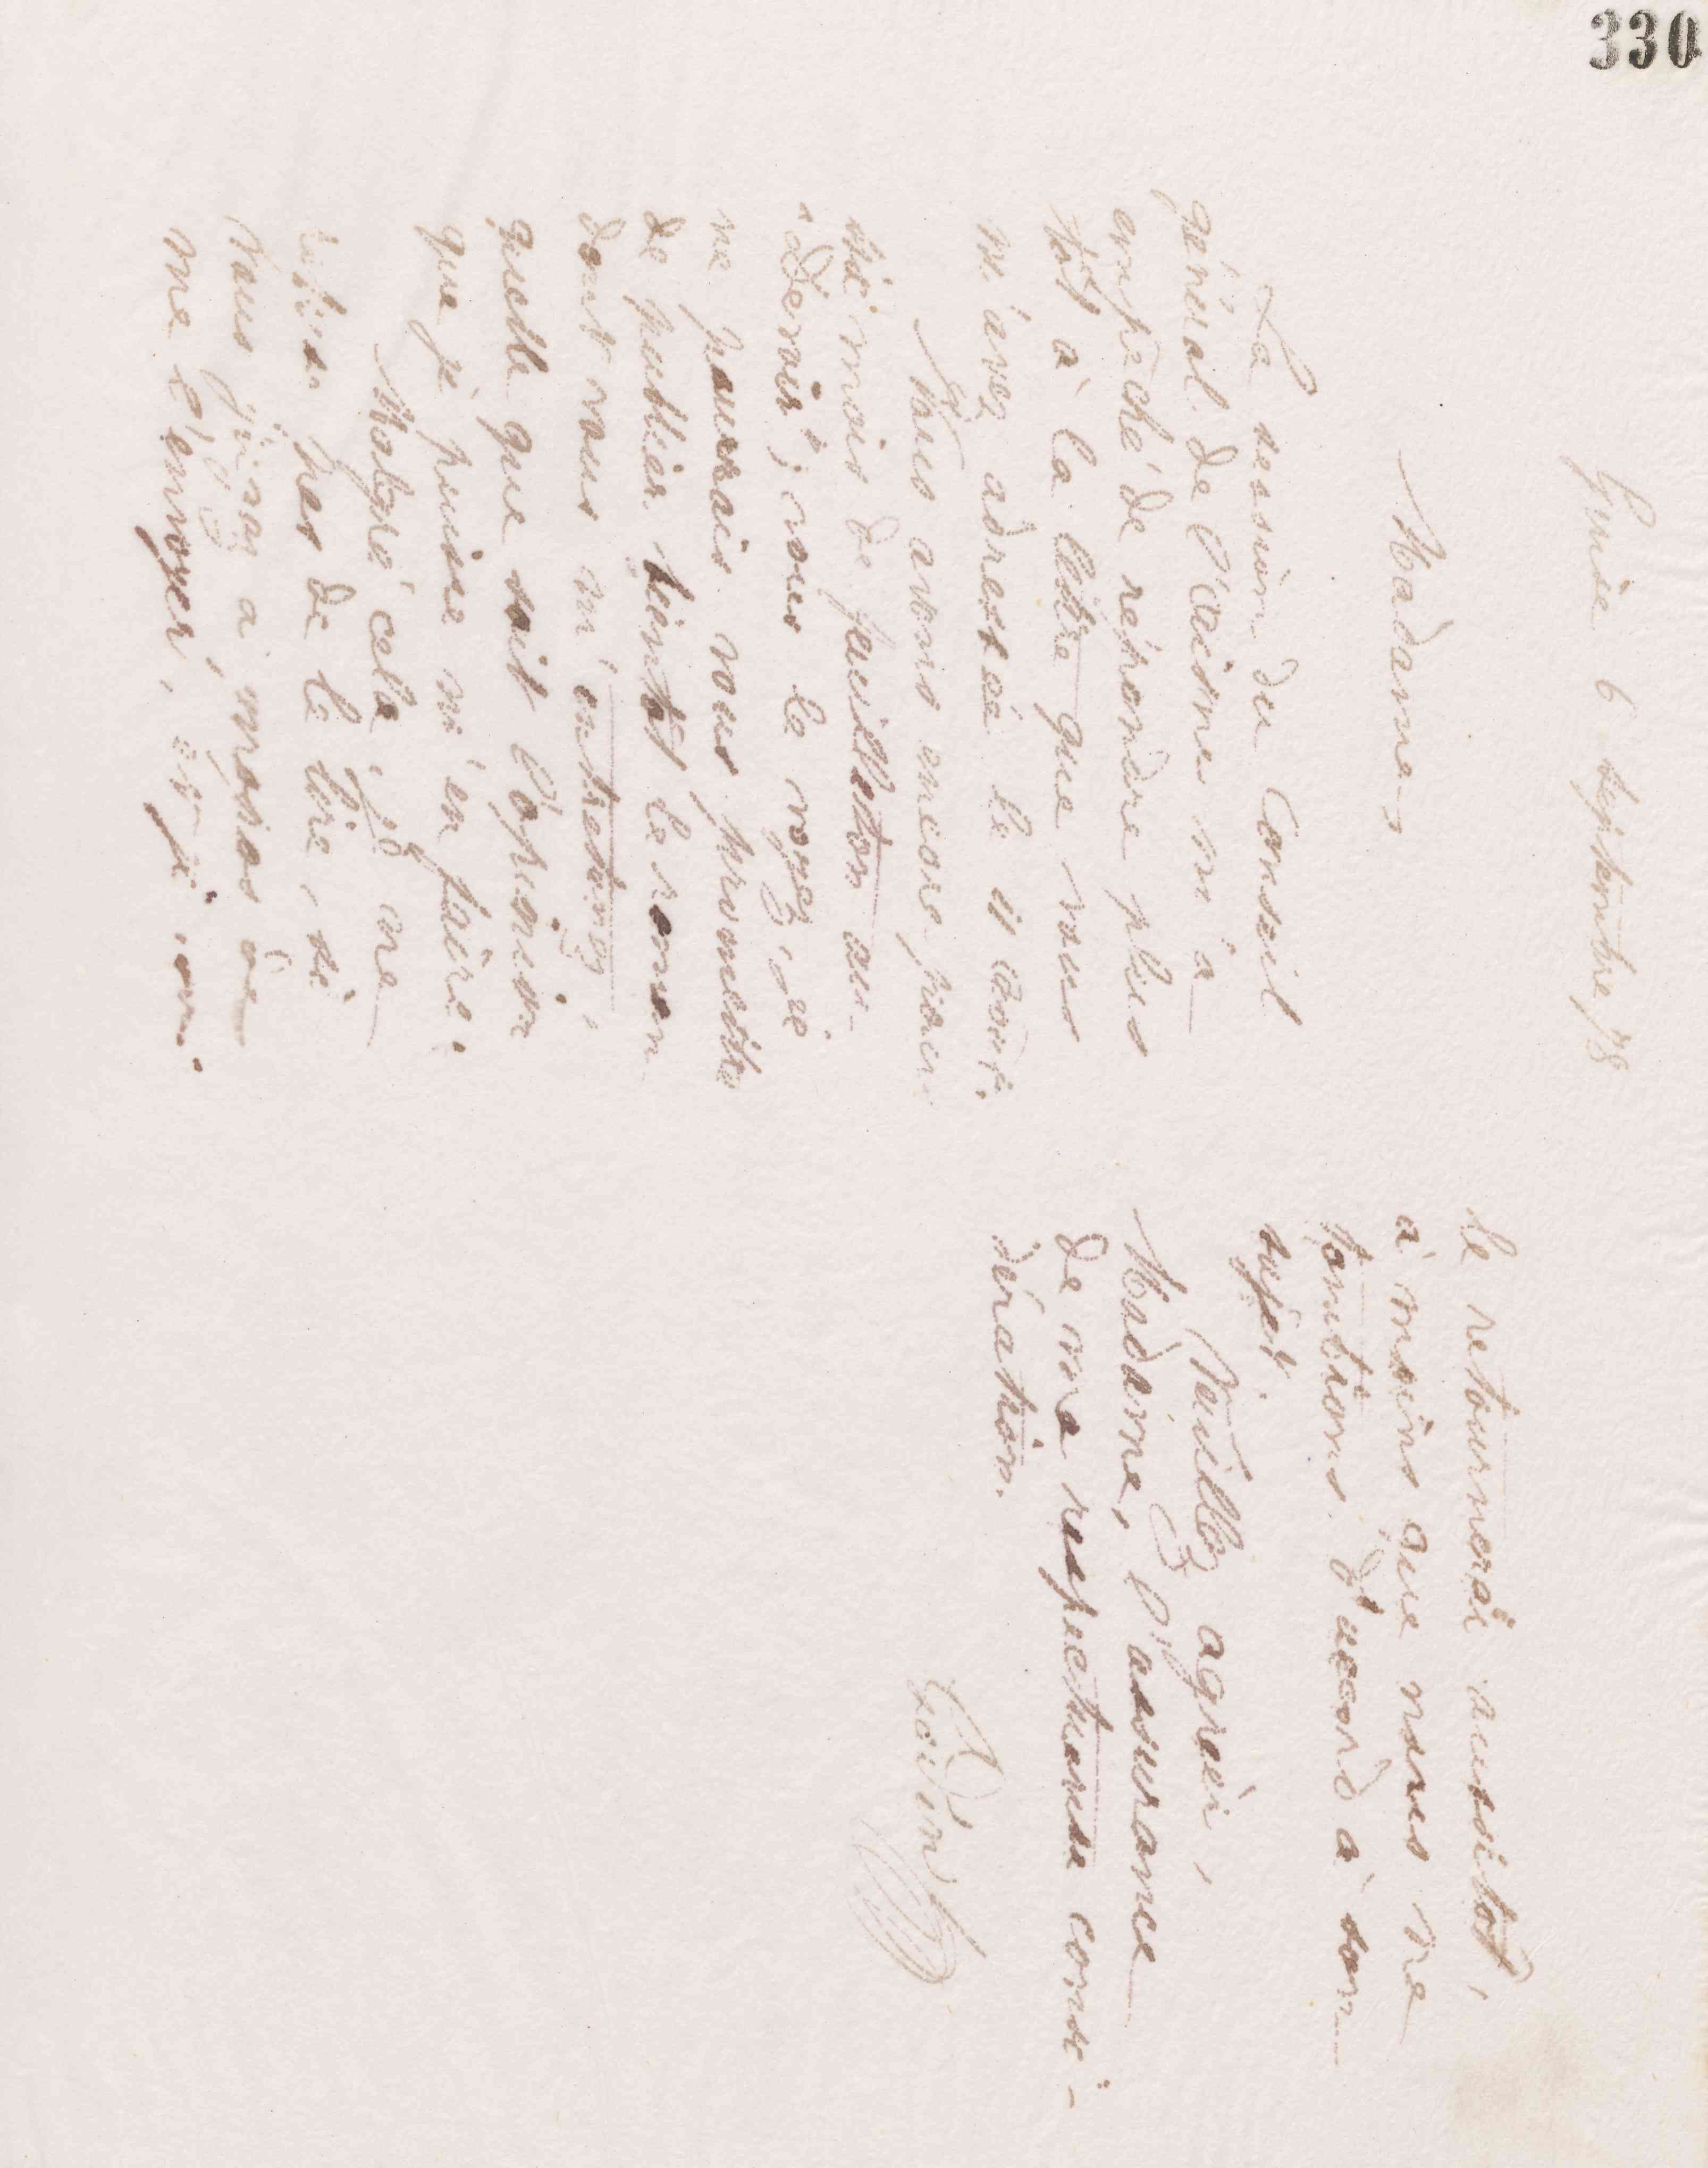 330
Guise 6 septembre 78
Madame,
La session du Conseil
général de l'Aisne m'a
empêché de répondre plus
tôt à la lettre que vous
m'avez adressée le 21 août.
Nous avons encore pour
six mois de feuilleton au
"Devoir"; vous le voyez, je
ne pourrais vous promettre
de publier bientôt le roman
dont vous m'entretenez,
quelle que soit l'opinion
que je puisse m'en faire.
Malgré cela, je ne
refuse pas de le lire, si
vous jugez à propos de
me l'envoyer, et je vous
le retournerai aussitôt,
à moins que nous ne
tombions d'accord à son
sujet.
Veuillez agréer,
Madame, l'assurance
de ma respectueuse consi-
dération.
Godin